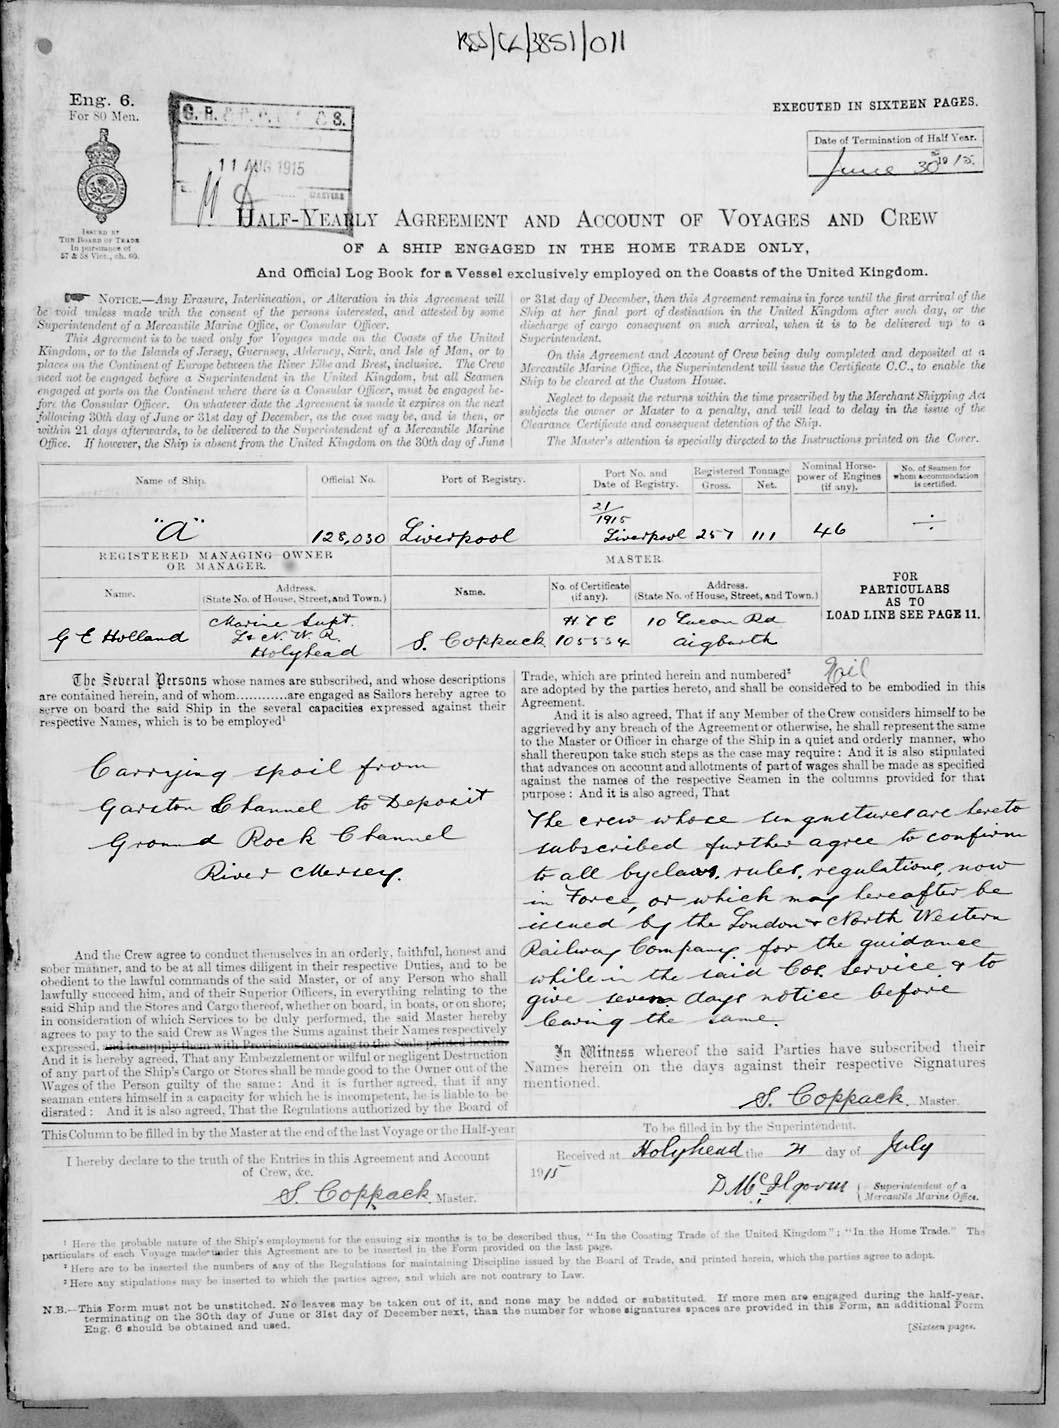 RSS/CL/3851/011
Eng. 6.
For 80 Men.
ISSUED BY
THE BOARD OF TRADE
In pursuance of
57 & 58 Vict., ch. 60.
11 AUG 1915
EXECUTED IN SIXTEEN PAGES.
Date of Termination of Half Year.
June 30th 1915.
HALF-YEARLY AGREEMENT AND ACCOUNT OF VOYAGES AND CREW
OF A SHIP ENGAGED IN THE HOME TRADE ONLY,
And Official Log Book for a Vessel exclusively employed on the Coasts of the United Kingdom.
NOTICE.—Any Erasure, Interlineation, or Alteration in this Agreement will
be void unless made with the consent of the persons interested, and attested by some
Superintendent of a Mercantile Marine Office, or Consular Officer.
This Agreement is to be used only for Voyages made on the Coasts of the United
Kingdom, or to the Islands of Jersey, Guernsey, Alderney, Sark, and Isle of Man, or to
places on the Continent of Europe between the River Elbe and Brest, inclusive. The Crew
need not be engaged before a Superintendent in the United Kingdom, but all Seamen
engaged at ports on the Continent where there is a Consular Officer, must be engaged be-
fore the Consular Officer. On whatever date the Agreement is made it expires on the next
following 30th day of June or 31st day of December, as the case may be, and is then, or
within 21 days afterwards, to be delivered to the Superintendent of a Mercantile Marine
Office. If however, the Ship is absent from the United Kingdom on the 30th day of June
or 31st day of December, then this Agreement remains in force until the first arrival of the
Ship at her final port of destination in the United Kingdom after such day, or the
discharge of cargo consequent on such arrival, when it is to be delivered up to a
Superintendent.
On this Agreement and Account of Crew being duly completed and deposited at a
Mercantile Marine Office, the Superintendent will issue the Certificate C.C., to enable the
Ship to be cleared at the Custom House.
Neglect to deposit the returns within the time prescribed by the Merchant Shipping Act
subjects the owner or Master to a penalty, and will lead to delay in the issue of the
Clearance Certificate and consequent detention of the Ship.
The Master's attention is specially directed to the Instructions printed on the Cover.
Name of Ship.
Official No.
Port of Registry.
Port No. and
Date of Registry.
Registered Tonnage
Gross.
Net.
Nominal Horse-
power of Engines
(if any).
No. of Seamen for
whom accommodation
is certified.
"A"
128,030
Liverpool
21/1915
Liverpool
257
111
46
÷
REGISTERED MANAGING OWNER
OR MANAGER.
MASTER.
FOR
PARTICULARS
AS TO
LOAD LINE SEE PAGE 11.
Name.
Address.
(State No. of House, Street, and Town.)
Name.
No. of Certificate
(if any).
Address.
(State No. of House, Street, and Town.)
G E Holland
Marine Supt.
L & N. W. R.
Holyhead
S. Coppack
105554
10 Lucan Rd
Aigburth
The Several Persons whose names are subscribed, and whose descriptions
are contained herein, and of whom............are engaged as Sailors hereby agree to
serve on board the said Ship in the several capacities expressed against their
respective Names, which is to be employed¹
Carrying spoil from
Garston Channel to Deposit
Ground Rock Channel
River Mersey.
And the Crew agree to conduct themselves in an orderly, faithful, honest and
sober manner, and to be at all times diligent in their respective Duties, and to be
obedient to the lawful commands of the said Master, or of any Person who shall
lawfully succeed him, and of their Superior Officers, in everything relating to the
said Ship and the Stores and Cargo thereof, whether on board, in boats, or on shore;
in consideration of which Services to be duly performed, the said Master hereby
agrees to pay to the said Crew as Wages the Sums against their Names respectively
expressed, and to supply them with Provisions according to the Scale printed herein.
And it is hereby agreed, That any Embezzlement or wilful or negligent Destruction
of any part of the Ship's Cargo or Stores shall be made good to the Owner out of the
Wages of the Person guilty of the same: And it is further agreed, that if any
seaman enters himself in a capacity for which he is incompetent, he is liable to be
disrated: And it is also agreed, That the Regulations authorized by the Board of
Trade, which are printed herein and numbered² Nil
are adopted by the parties hereto, and shall be considered to be embodied in this
Agreement.
And it is also agreed, That if any Member of the Crew considers himself to be
aggrieved by any breach of the Agreement or otherwise, he shall represent the same
to the Master or Officer in charge of the Ship in a quiet and orderly manner, who
shall thereupon take such steps as the case may require: And it is also stipulated
that advances on account and allotments of part of wages shall be made as specified
against the names of the respective Seamen in the columns provided for that
purpose: And it is also agreed, That
The crew whose singnatures are hereto
subscribed further agree to confirm
to all byelaws, rules, regulations, now
in Force, or which may hereafter be
issued by the London & North Western
Railway Company for the guidance
while in the said Cos. Service & to
give seven days notice before
leaving the same.
In Witness whereof the said Parties have subscribed their
Names herein on the days against their respective Signatures
mentioned.
S. Coppack. Master.
This Column to be filled in by the Master at the end of the last Voyage or the Half-year
I hereby declare to the truth of the Entries in this Agreement and Account
of Crew, &c.
S. Coppack. Master.
To be filled in by the Superintendent.
Received at Holyhead the 21 day of July
1915
Superintendent of a
Mercantile Marine Office.
¹ Here the probable nature of the Ship's employment for the ensuing six months is to be described thus, "In the Coasting Trade of the United Kingdom"; "In the Home Trade." The
particulars of each Voyage made under this Agreement are to be inserted in the Form provided on the last page.
² Here are to be inserted the numbers of any of the Regulations for maintaining Discipline issued by the Board of Trade, and printed herein, which the parties agree to adopt.
³ Here any stipulations may be inserted to which the parties agree, and which are not contrary to Law.
N.B.—This Form must not be unstitched. No leaves may be taken out of it, and none may be added or substituted. If more men are engaged during the half-year,
terminating on the 30th day of June or 31st day of December next, than the number for whose signatures spaces are provided in this Form, an additional Form
Eng. 6 should be obtained and used.
[Sixteen pages.